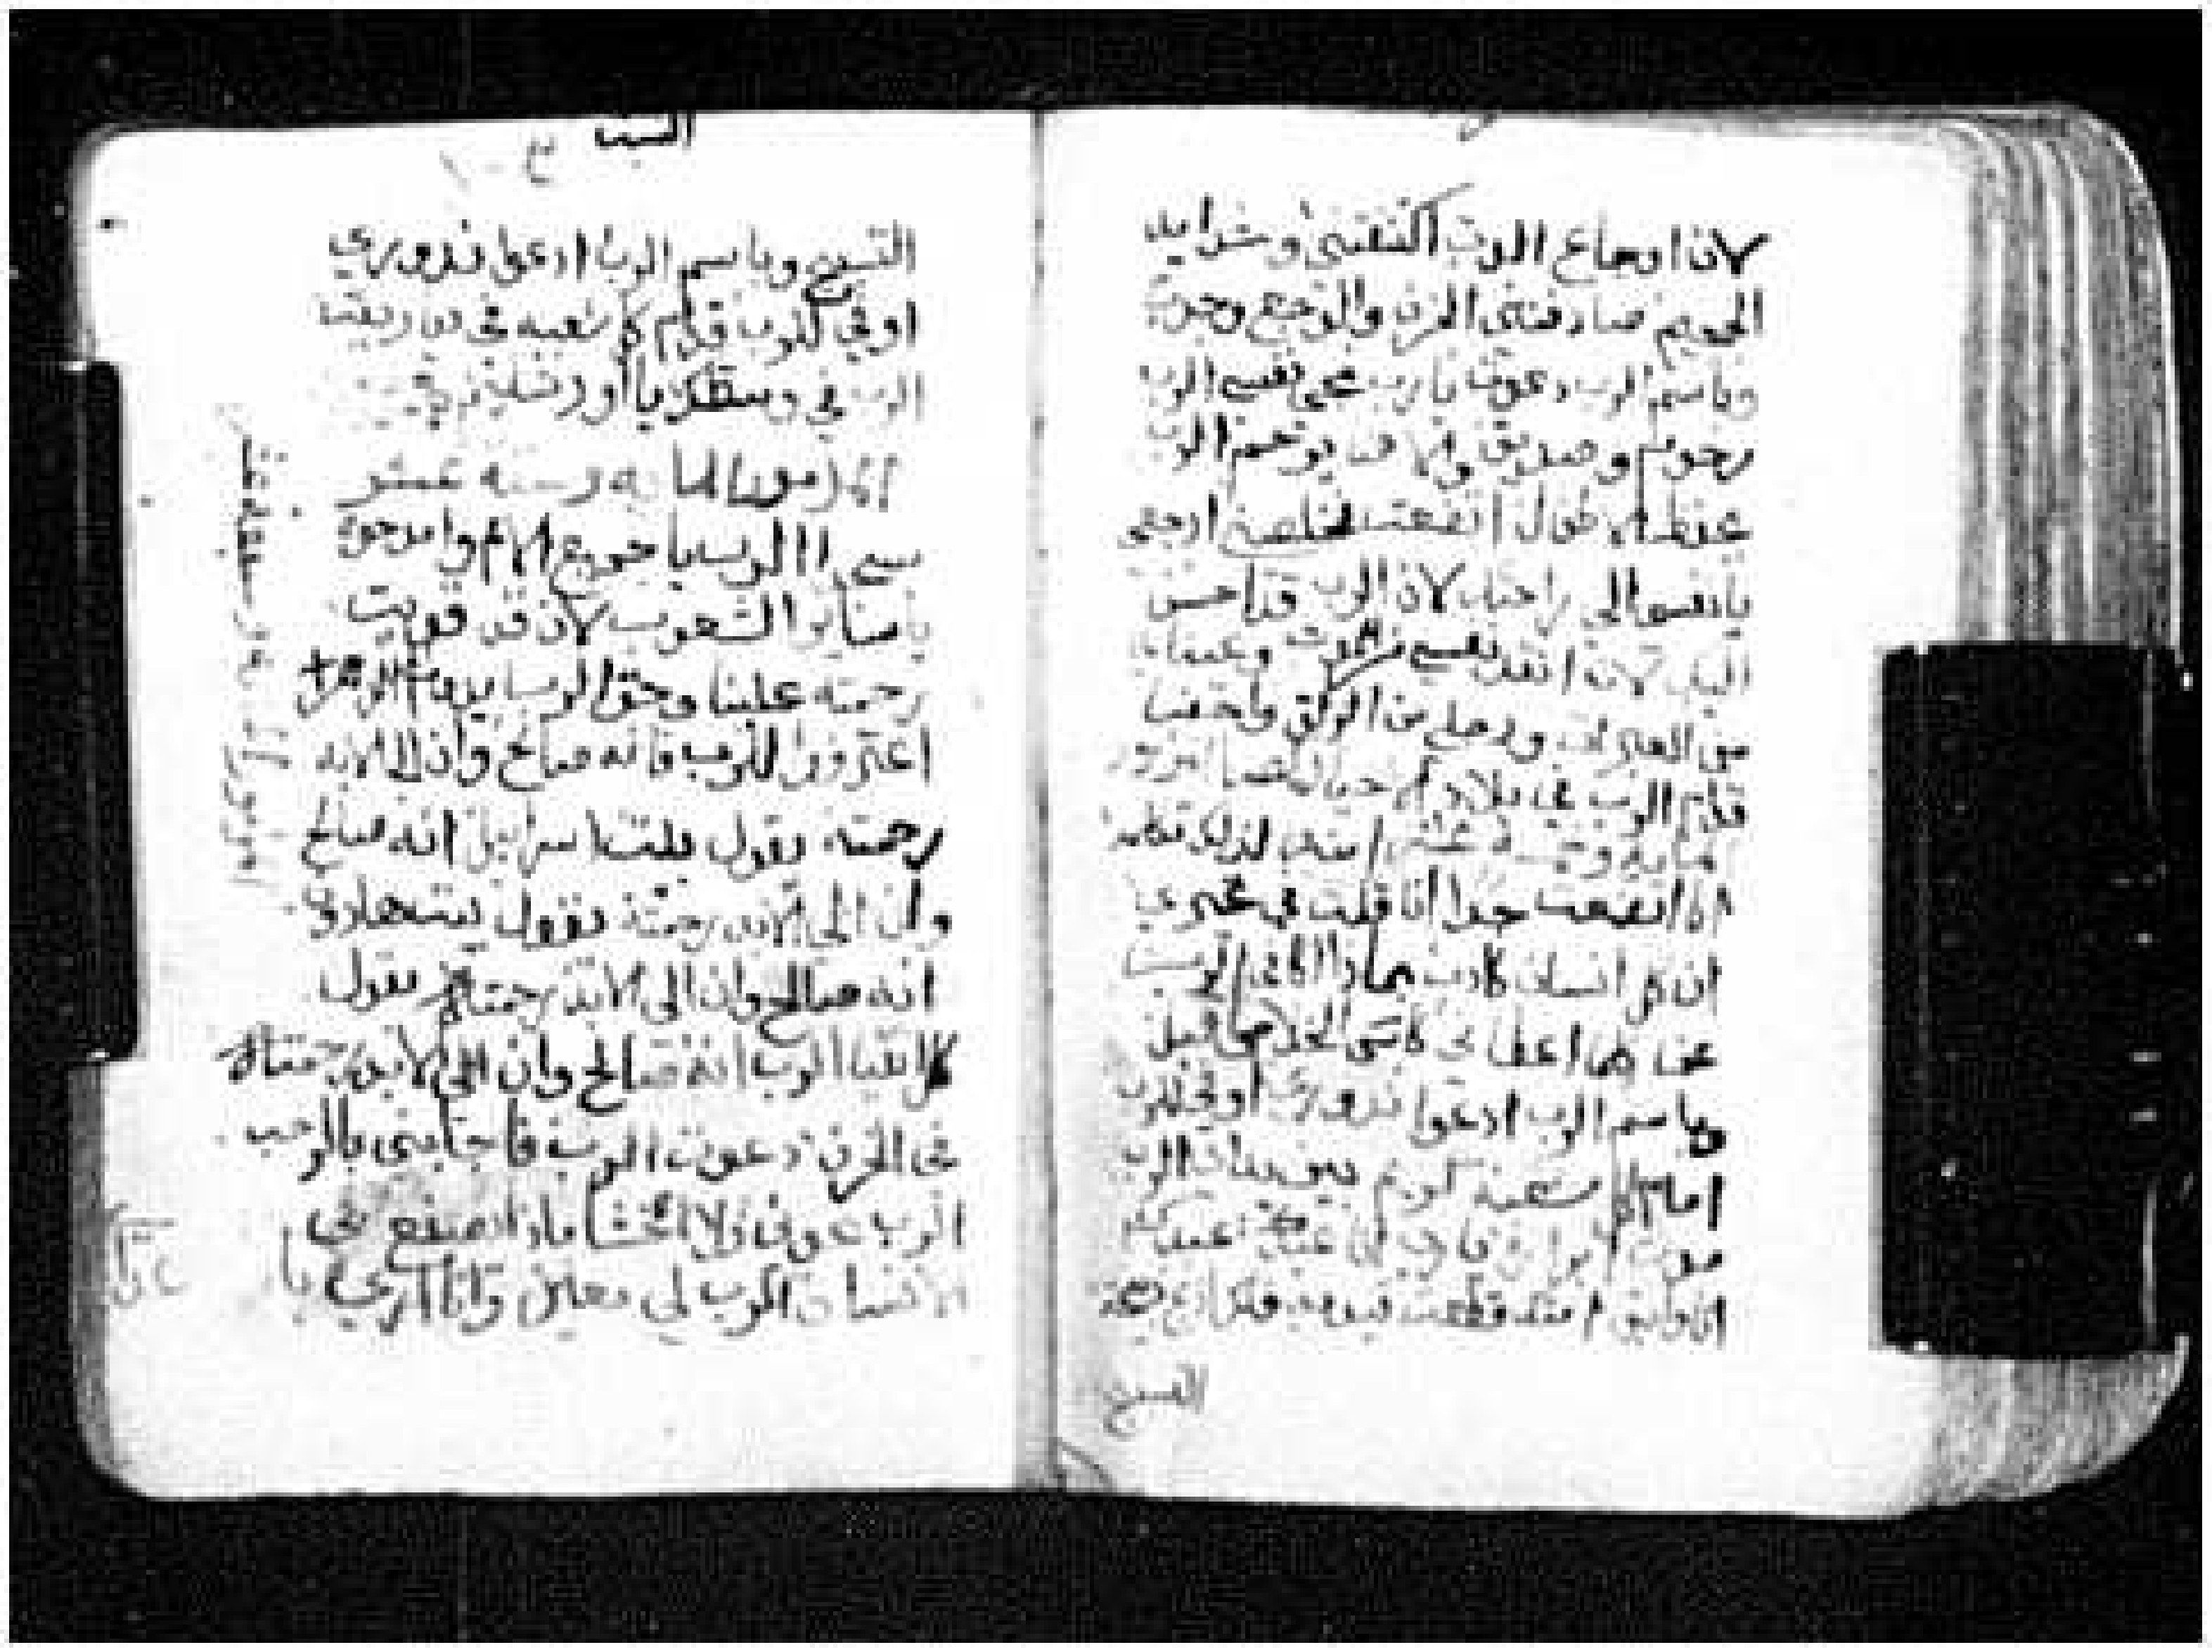 لان اوجاع الموت اكتنفتني وشدايد
الجحيم صادفتني الحزن والوجع وجدت
وباسم الرب دعوت يا رب نجي نفسي الرب
رحوم وصديق والاهنا يرحم الرب
يحفظ الاطفال اتضعت فخلصني ارجعي
يا نفسي الي راحتك لان الرب قد احسن
اليك لانه انقذ نفسي من الموت وعيناي
من العبرات ورجلي من الزلق وارضينا
قدام الرب في بلاد الاحيا
مايه وخمسة عشر امنت لذلك تكلمت
انا اتضعت جدا انا قلت في تحيري
ان كل انسان كادب بماذا اكافي الرب
عن كلما اعطاني كاس الخلاص اقبل
وباسم الرب ادعوا نذوري اوفي للرب
امام كل شعبه كريم بين يدي الرب
موت ابراره يا رب انا عبدك عبدك
ابن امتك قطعت قيودي فلك اذبح ذبيحة
التسبيح
السبت
التسبيح وباسم الرب ادعوا نذوري
اوفي للرب قدام كل شعبه في ديار بيت
الرب في وسطك يا اورشليم
المزمور المايه وستة عشر
سبحوا الرب يا جميع الامم وامدحوه
يا ساير الشعوب لان قد قويت
رحمته علينا وحق الرب يدوم الي الدهر
اعترفوا للرب فانه صالح وان الي الابد
رحمته يقول بيت اسراييل انه صالح
وان الي الابد رحمته يقول بيت هارون
انه صالح وان الي الابد رحمته يقول
كل اتقيا الرب انه صالح وان الي الابد رحمته
في الحزن دعوت الرب فاجابني بالرحب
الرب عوني فلا اخشا ماذا يصنع بي
الانسان الرب لي معين وانا اري